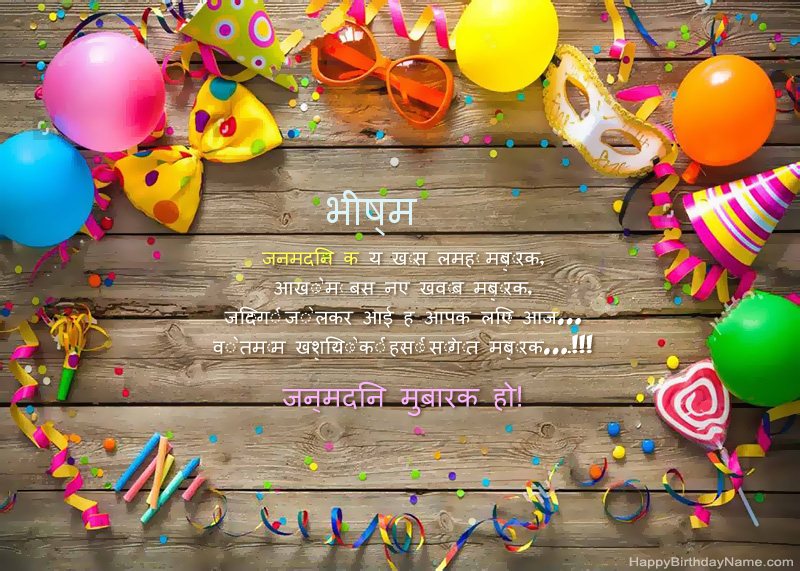 भीष्म
जनमदनि क य खास लमहा मबारक,
आखोमा बस नए खवाब मबारक,
जदिगी जो लेकर आई ह आपक लएि आज...
वो तमाम खशयिो की हसी सौगात मबारक....!!!
जन्मदनि मुबारक हो!
HappyBirthdayName.com